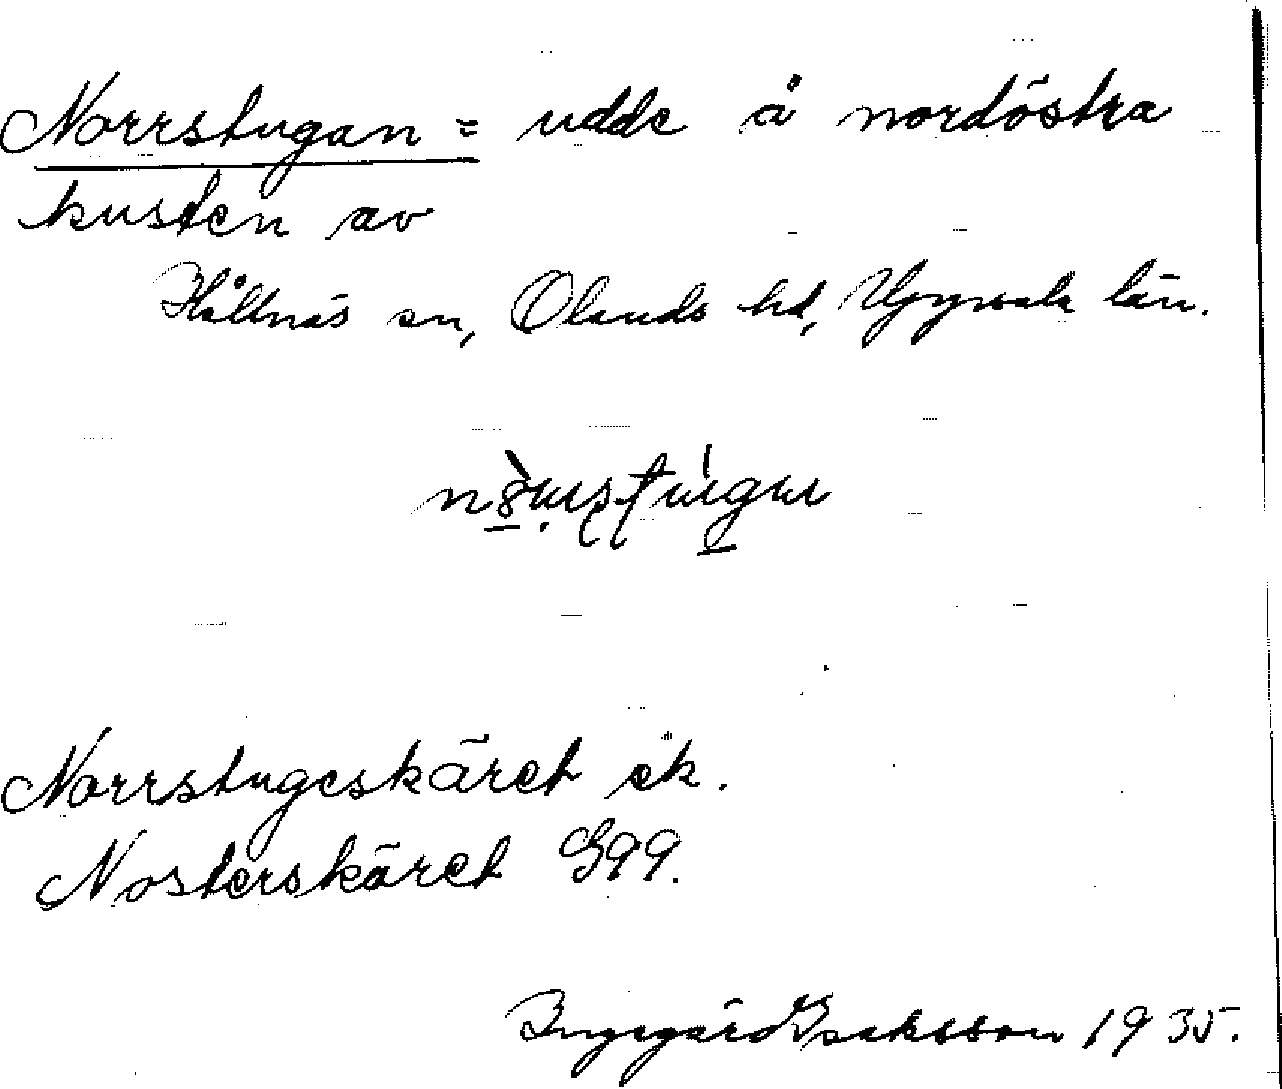 Norrstugan = udde å nordöstra
kusten av
Hållnäs sn, Olands hd, Uppsala län.
Norrstugeskäret ek.
Nosterskäret G99.
Ingegärd Isaksson 1935.